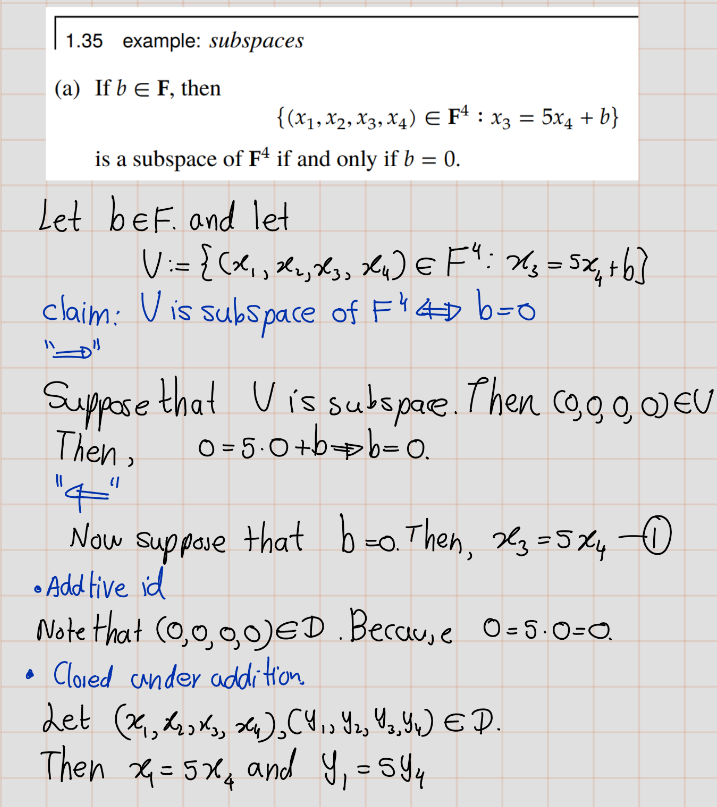 1.35 example: subspaces
(a) If b ∈ F, then
{(x₁, x₂, x₃, x₄) ∈ F⁴ : x₃ = 5x₄ + b}
is a subspace of F⁴ if and only if b = 0.
Let b∈F. and let
V:= {(x₁, x₂, x₃, x₄) ∈ F⁴: x₃ = 5x₄+b}
claim: V is subspace of F⁴ ⇔ b=0
"⇒"
Suppose that V is subspace. Then (0,0,0,0)∈V
Then, 0=5·0+b⇒b=0.
"⇐"
Now suppose that b=0. Then, x₃=5x₄ —①
• Additive id
Note that (0,0,0,0)∈D. Because 0=5·0=0.
• Closed under addition.
Let (x₁, x₂, x₃, x₄), (y₁, y₂, y₃, y₄) ∈ D.
Then x₁ = 5x₄ and y₁ = 5y₄